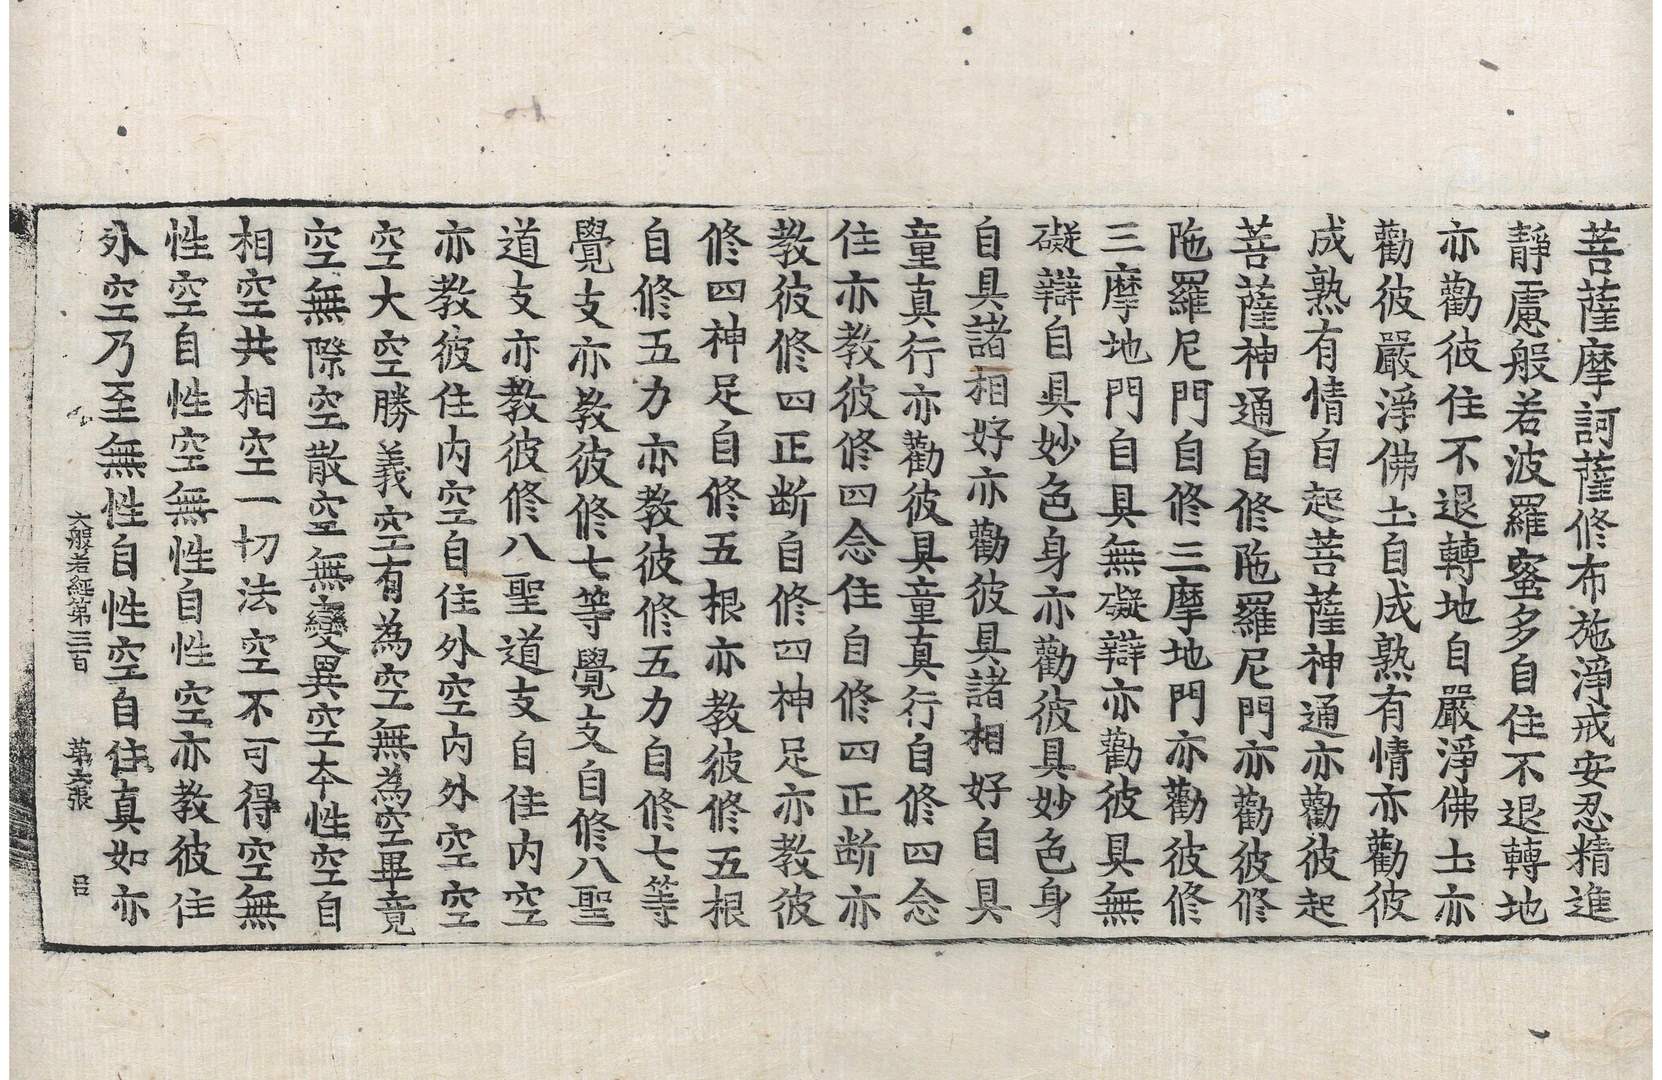 菩薩摩訶薩修布施淨戒安忍精進
靜慮般若波羅蜜多自住不退轉地
亦勸彼住不退轉地自嚴淨佛土亦
勸彼嚴淨佛土自成熟有情亦勸彼
成熟有情自起菩薩神通亦勸彼起
菩薩神通自修陁羅尼門亦勸彼修
陁羅尼門自修三摩地門亦勸彼修
三摩地門自具無礙辯亦勸彼具無
礙辯自具妙色身亦勸彼具妙色身
自具諸相好亦勸彼具諸相好自具
童真行亦勸彼具童真行自修四念
住亦教彼修四念住自修四正断亦
教彼修四正断自修四神足亦教彼
修四神足自修五根亦教彼修五根
自修五力亦教彼修五力自修七等
覺支亦教彼修七等覺支自修八聖
道支亦教彼修八聖道支自住内空
亦教彼住内空自住外空内外空空
空大空勝義空有為空無為空畢竟
空無際空散空無變異空本性空自
相空共相空一切法空不可得空無
性空自性空無性自性空亦教彼住
外空乃至無性自性空自住真如亦
大般若經第三百 第五張 吕